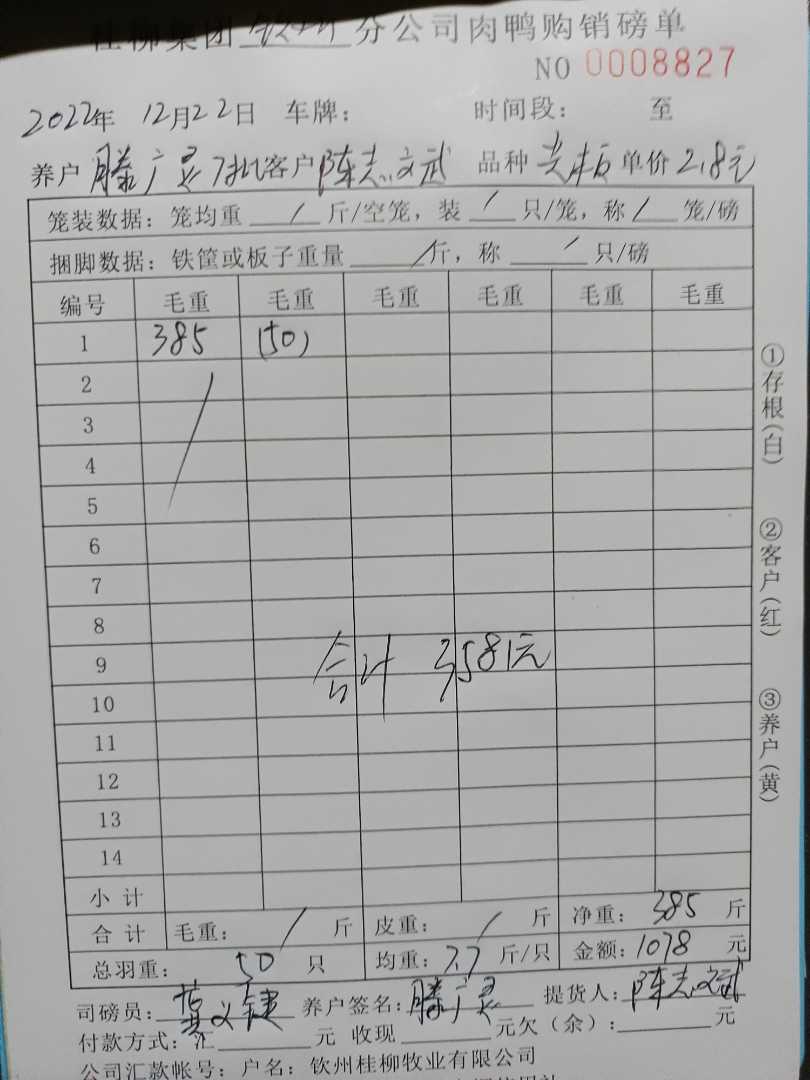 桂柳集团 钦州 分公司肉鸭购销磅单
NO 0008827
2022年 12月22日 车牌: 时间段: 至
养户 滕广 客户 陈志文武 品种 单价 2.8元
笼装数据: 笼均重 / 斤/空笼, 装 / 只/笼, 称 / 笼/磅
捆脚数据: 铁筐或板子重量 / 斤, 称 / 只/磅
编号 毛重 毛重 毛重 毛重 毛重 毛重
1 385 (50)
2
3
4
5
6
7
8
9
合计 3581元
10
11
12
13
14
小计
合计 毛重: / 斤 皮重: / 斤 净重: 385 斤
总羽重: 50 只 均重: 7.7 斤/只 金额: 1078 元
司磅员: 养户签名: 滕广 提货人: 陈志文武
付款方式: 汇 元 收现 元欠(余): 元
公司汇款帐号: 户名: 钦州桂柳牧业有限公司
①存根(白)
②客户(红)
③养户(黄)